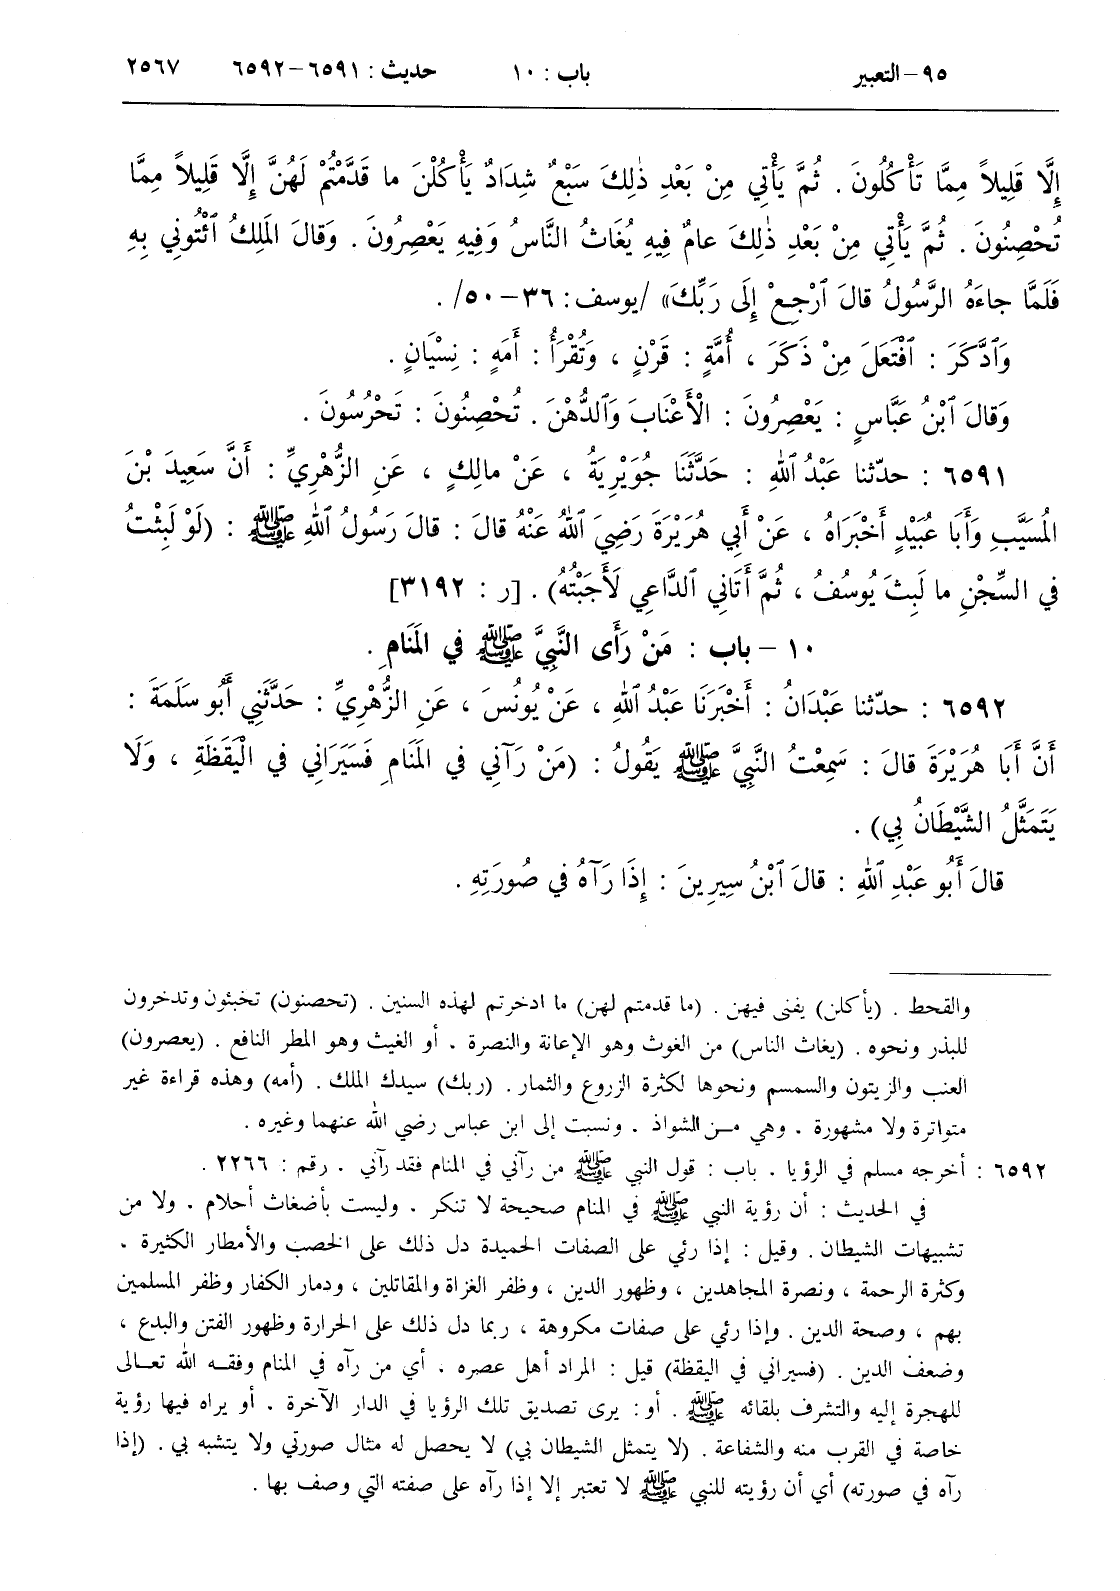 ٩٥ – التعبير باب : ١٠ حديث : ٦٥٩١–٦٥٩٢ ٢٥٦٧
إِلَّا قَلِيلاً مِمَّا تَأْكُلُونَ . ثُمَّ يَأْتِي مِنْ بَعْدِ ذٰلِكَ سَبْعٌ شِدَادٌ يَأْكُلْنَ ما قَدَّمْتُمْ لَهُنَّ إِلَّا قَلِيلاً مِمَّا
تُحْصِنُونَ . ثُمَّ يَأْتِي مِنْ بَعْدِ ذٰلِكَ عامٌ فِيهِ يُغَاثُ النَّاسُ وَفِيهِ يَعْصِرُونَ . وَقالَ المَلِكُ ٱئْتُونِي بِهِ
فَلَمَّا جاءَهُ الرَّسُولُ قالَ ٱرْجِعْ إِلَى رَبِّكَ» /يوسف: ٣٦–٥٠/ .
وَٱدَّكَرَ : ٱفْتَعَلَ مِنْ ذَكَرَ ، أُمَّةٍ : قَرْنٍ ، وَتُقْرَأُ : أَمَهٍ : نِسْيَانٍ .
وَقالَ ٱبْنُ عَبَّاسٍ : يَعْصِرُونَ : الْأَعْنَابَ وَٱلدُّهْنَ . تُحْصِنُونَ : تَحْرُسُونَ .
٦٥٩١ : حدّثنا عَبْدُ ٱللهِ : حَدَّثَنَا جُوَيْرِيَةُ ، عَنْ مالِكٍ ، عَنِ الزُّهْرِيِّ : أَنَّ سَعِيدَ بْنَ
المُسَيَّبِ وَأَبَا عُبَيْدٍ أَخْبَرَاهُ ، عَنْ أَبِي هُرَيْرَةَ رَضِيَ ٱللهُ عَنْهُ قالَ : قالَ رَسُولُ ٱللهِ ﷺ : (لَوْ لَبِثْتُ
في السِّجْنِ ما لَبِثَ يُوسُفُ ، ثُمَّ أَتَانِي ٱلدَّاعِي لَأَجَبْتُهُ) . [ر : ٣١٩٢]
١٠ – باب : مَنْ رَأَى النَّبِيَّ ﷺ في المَنَامِ .
٦٥٩٢ : حدّثنا عَبْدَانُ : أَخْبَرَنَا عَبْدُ ٱللهِ ، عَنْ يُونُسَ ، عَنِ الزُّهْرِيِّ : حَدَّثَنِي أَبُو سَلَمَةَ :
أَنَّ أَبَا هُرَيْرَةَ قالَ : سَمِعْتُ النَّبِيَّ ﷺ يَقُولُ : (مَنْ رَآنِي في المَنَامِ فَسَيَرَانِي في الْيَقَظَةِ ، وَلَا
يَتَمَثَّلُ الشَّيْطَانُ بِي) .
قالَ أَبُو عَبْدِ ٱللهِ : قالَ ٱبْنُ سِيرِينَ : إِذَا رَآهُ في صُورَتِهِ .
والقحط . (يأكلن) يفنى فيهن . (ما قدمتم لهن) ما ادخرتم لهذه السنين . (تحصنون) تخبئون وتدخرون
للبذر ونحوه . (يغاث الناس) من الغوث وهو الإعانة والنصرة . أو الغيث وهو المطر النافع . (يعصرون)
العنب والزيتون والسمسم ونحوها لكثرة الزروع والثمار . (ربك) سيدك الملك . (أمه) وهذه قراءة غير
متواترة ولا مشهورة . وهي من الشواذ . ونسبت إلى ابن عباس رضي الله عنهما وغيره .
٦٥٩٢ : أخرجه مسلم في الرؤيا . باب : قول النبي ﷺ من رآني في المنام فقد رآني . رقم : ٢٢٦٦ .
في الحديث : أن رؤية النبي ﷺ في المنام صحيحة لا تنكر . وليست بأضغاث أحلام . ولا من
تشبيهات الشيطان . وقيل : إذا رئي على الصفات الحميدة دل ذلك على الخصب والأمطار الكثيرة .
وكثرة الرحمة ، ونصرة المجاهدين ، وظهور الدين ، وظفر الغزاة والمقاتلين ، ودمار الكفار وظفر المسلمين
بهم ، وصحة الدين . وإذا رئي على صفات مكروهة ، ربما دل ذلك على الحرارة وظهور الفتن والبدع ،
وضعف الدين . (فسيراني في اليقظة) قيل : المراد أهل عصره . أي من رآه في المنام وفقه الله تعالى
للهجرة إليه والتشرف بلقائه ﷺ . أو: يرى تصديق تلك الرؤيا في الدار الآخرة . أو يراه فيها رؤية
خاصة في القرب منه والشفاعة . (لا يتمثل الشيطان بي) لا يحصل له مثال صورتي ولا يتشبه بي . (إذا
رآه في صورته) أي أن رؤيته للنبي ﷺ لا تعتبر إلا إذا رآه على صفته التي وصف بها .